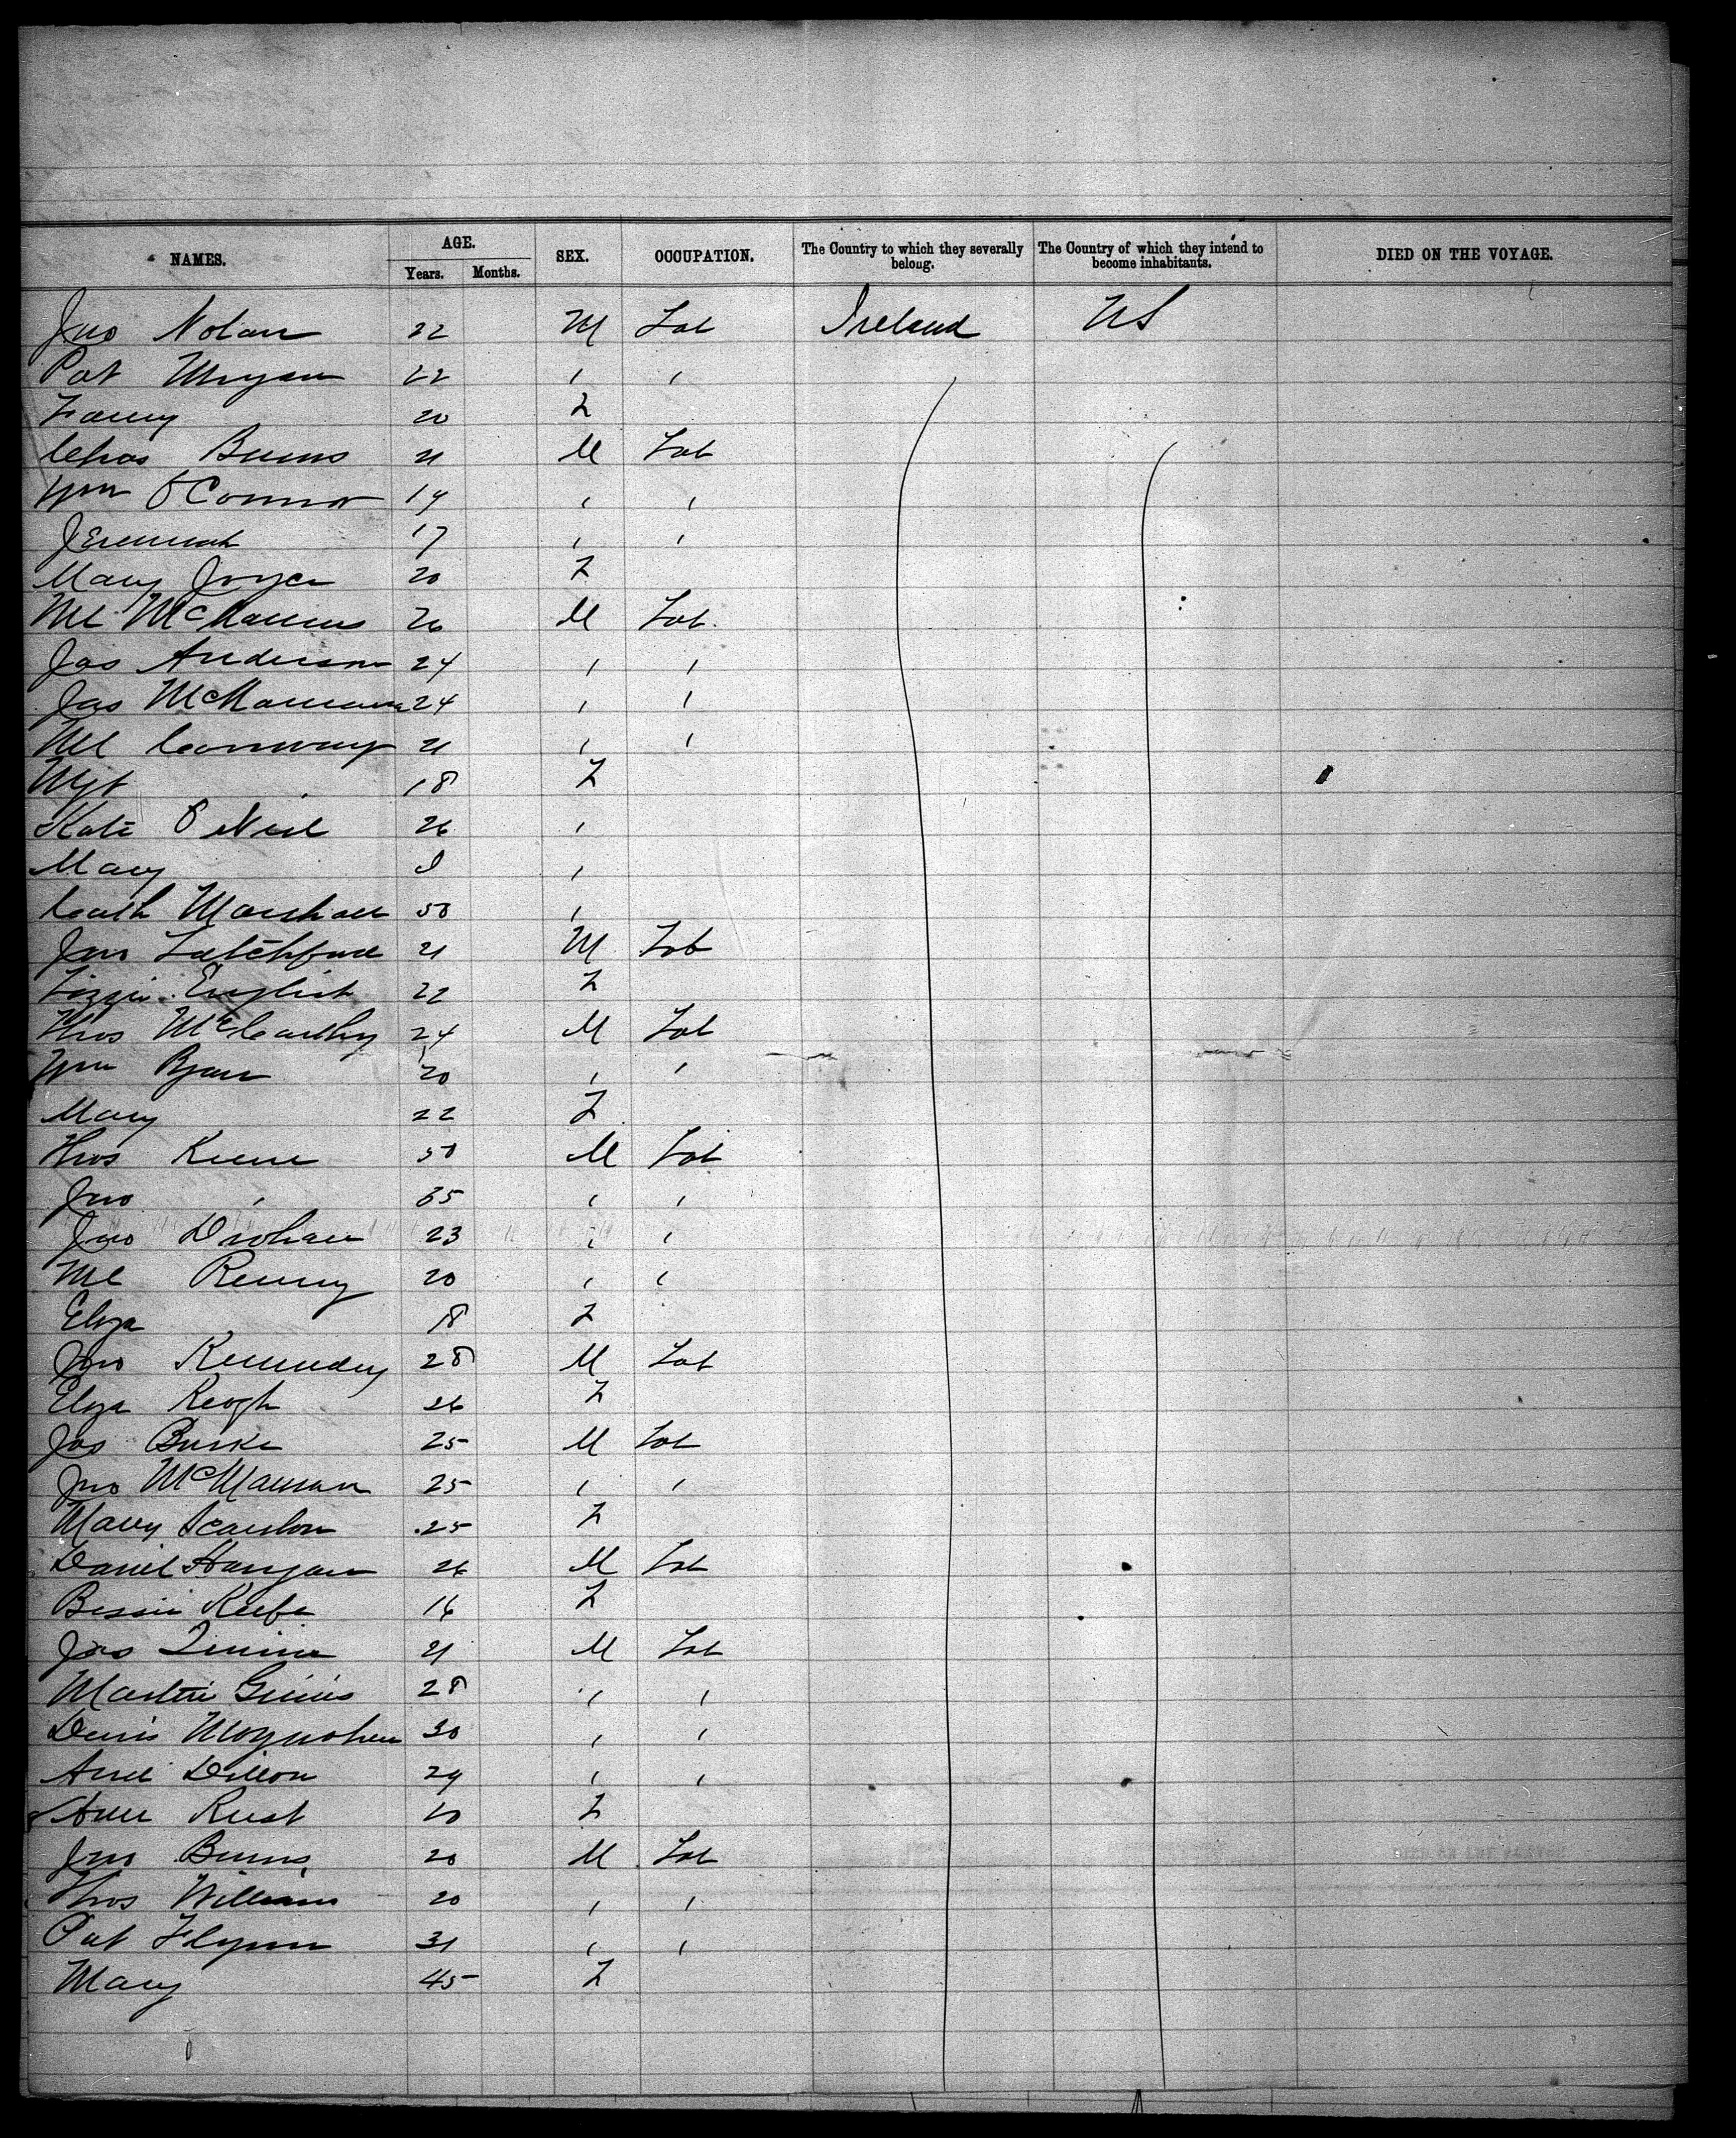 NAMES. AGE. SEX. OCCUPATION. The Country to which they severally belong. The Country of which they intend to become inhabitants. DIED ON THE VOYAGE.
Years. Months.
Jno Nolan 22 M Lab Ireland US
Pat 22 ' '
Fanny 20 F
Chas Burns 21 M Lab
Wm O'Connor 19 ' '
Jeremiah 17 ' '
Mary Joyce 20 F
Ml McManus 26 M Lab.
Jas Anderson 24 ' '
Jas McNamara 24 ' '
Ml Conway 21 ' '
Mgt 18 F
Kate O Neil 26 '
Mary '
Cath Marshall 50 '
Jno Latchford 21 M Lab
Lizzie English 22 F
Thos McCarthy 24 M Lab
Wm Ryan 20 ' '
Mary 22 F
Thos Keene 50 M Lab
Jno ' 65 ' '
Jno Drohan 23 ' '
Ml 20 ' '
Eliza 18 F
Jno Kennedy 28 M Lab
Eliza Keogh 26 F
Jas Burke 25 M Lab
Jno McNamara 25 ' '
Mary Scanlon 25 F
Daniel 26 M Lab
Bessie Keefe 16 F
Jas 21 M Lab
Martin 28 ' '
Denis Moynahan 30 ' '
Dillon 29 ' '
F
Jno Burns 20 M Lab
Thos Williams 20 ' '
Pat Flynn 31 ' '
Mary 45 F